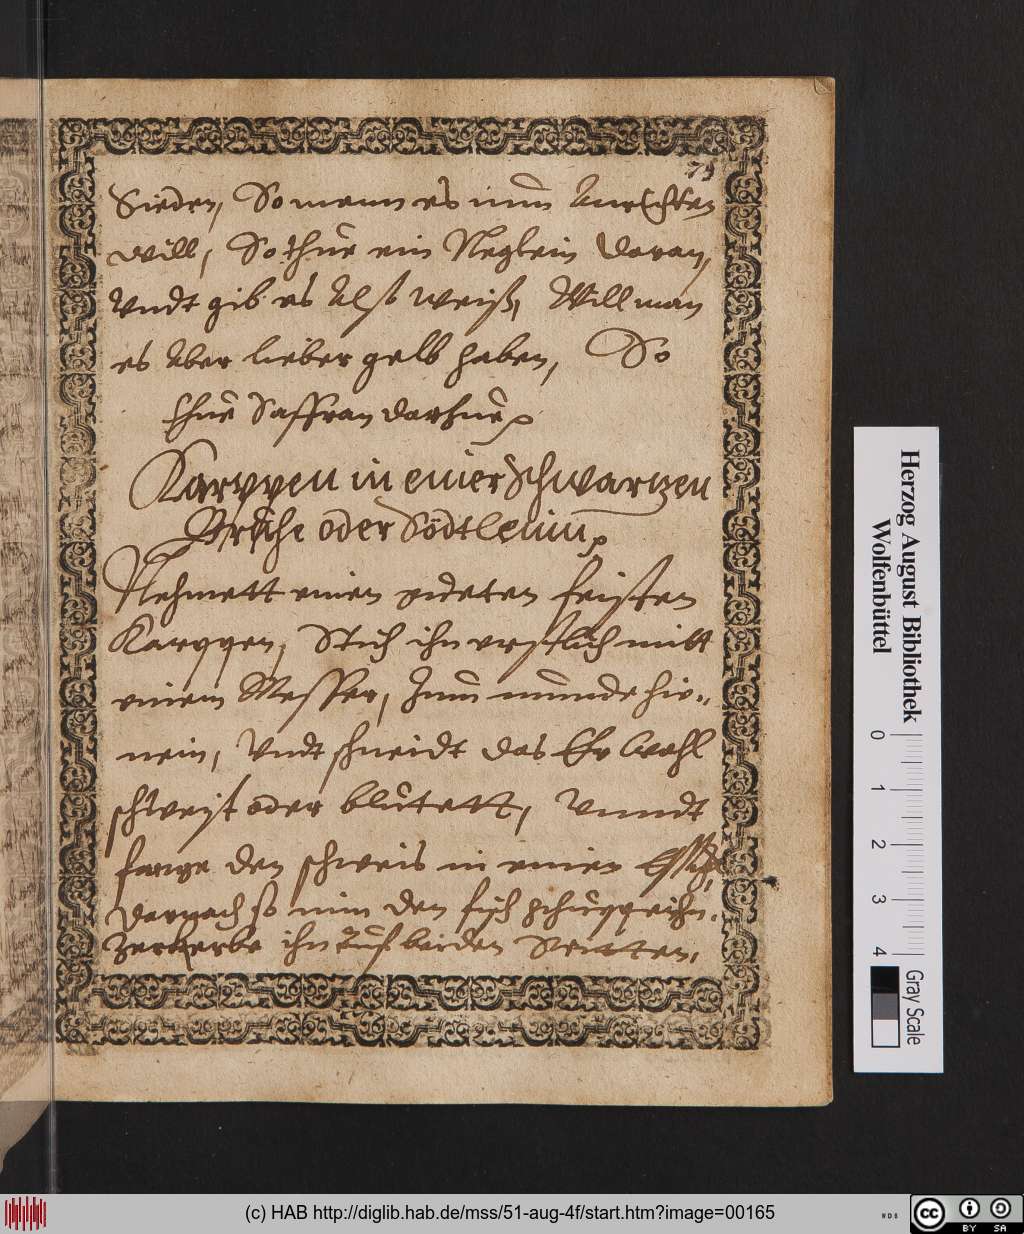 79
Sieden, So mann es nun Anrichten
will, So thue ein Neglein daran,
Undt gib es Also weiß, Will man
es Aber lieber gelb haben, So
thue Saffran darhue
Karppen in einer Schwartzen
Brühe oder Södtlein
Nehmett einen guten feisten
Karppen, Stich ihn erstlich mitt
einem Messer, Inn munde hin-
nein, Undt schneidt das Ehr Wohl
schweist oder bluetett, Unndt
fange den schweis in einen Essig,
darnach so nim den fisch schueppe ihn,
Zerkerbe ihn Auf beiden Seitten,
Herzog August Bibliothek
Wolfenbüttel
0 1 2 3 4
Gray Scale
(c) HAB http://diglib.hab.de/mss/51-aug-4f/start.htm?image=00165
WDB
cc BY SA